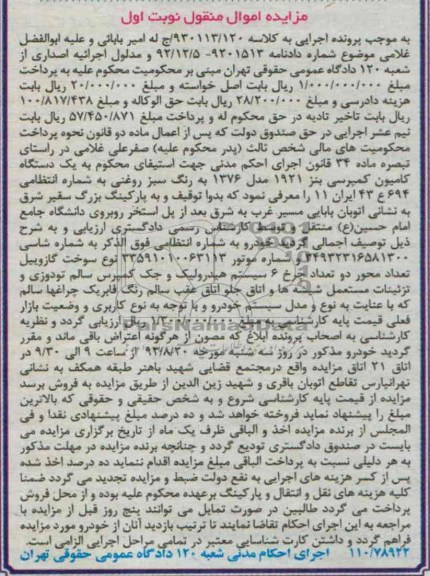 مزایده اموال منقول نوبت اول
به موجب پرونده اجرایی به کلاسه ۹۳۰۱۱۳/۱۲۰/ج له امیر بابائی و علیه ابوالفضل
غلامی موضوع شماره دادنامه ۹۲۰۱۵۱۳- ۹۲/۱۲/۵ و مدلول اجرائیه اصداری از
شعبه ۱۲۰ دادگاه عمومی حقوقی تهران مبنی بر محکومیت محکوم علیه به پرداخت
مبلغ ۱/۰۰۰/۰۰۰/۰۰۰ ریال بابت اصل خواسته و مبلغ ۲۰/۰۰۰/۰۰۰ ریال بابت
هزینه دادرسی و مبلغ ۲۸/۲۰۰/۰۰۰ ریال بابت حق الوکاله و مبلغ ۱۰۰/۸۱۷/۴۳۸
ریال بابت تاخیر تادیه در حق محکوم له و پرداخت مبلغ ۵۷/۴۵۰/۸۷۱ ریال بابت
نیم عشر اجرایی در حق صندوق دولت که پس از اعمال ماده دو قانون نحوه پرداخت
محکومیت های مالی شخص ثالث (پدر محکوم علیه) صفرعلی غلامی در راستای
تبصره ماده ۳۴ قانون اجرای احکم مدنی جهت استیفای محکوم به یک دستگاه
کامیون کمپرسی بنز ۱۹۲۱ مدل ۱۳۷۶ به رنگ سبز روغنی به شماره انتظامی
۶۹۴ ع ۴۳ ایران ۱۱ را معرفی نمود که بدوا توقیف و به پارکینگ بزرگ سقیر شرق
به نشانی اتوبان بابایی مسیر غرب به شرق بعد از پل استخر روبروی دانشگاه جامع
امام حسین(ع) منتقل و توسط کارشناس رسمی دادگستری ارزیابی و به شرح
ذیل توصیف اجمالی گردید خودرو به شماره انتظامی فوق الذکر به شماره شاسی
۳۴۹۳۲۳۱۶۵۸۱۳۰۰ و شماره موتور ۳۳۵۹۱۰۱۰۰۶۳۱۱۳ نوع سوخت گازوییل
تعداد محور دو تعداد چرخ ۶ سیستم هیدرولیک و جک کمپرس سالم تودوزی و
تزئینات مستعمل شیشه ها و اتاق جلو اتاق عقب سالم رنگ فابریک چراغها سالم
که با عنایت به نوع و مدل سیستم خودرو و با توجه به نوع کاربری و وضعیت بازار
فعلی قیمت پایه کارشناسی به مبلغ ریال ارزیابی گردد و نظریه
کارشناسی به اصحاب پرونده ابلاغ که مصون از هرگونه اعتراض باقی ماند و مقرر
گردید خودرو مذکور در روز سه شنبه مورخه ۹۳/۸/۲۰ از ساعت ۹ الی ۹/۳۰ در
اتاق ۲۱ اتاق مزایده واقع درمجتمع قضایی شهید باهنر طبقه همکف به نشانی
تهرانپارس تقاطع اتوبان باقری و شهید زین الدین از طریق مزایده به فروش برسد
مزایده از قیمت پایه کارشناسی شروع و به شخص حقیقی و حقوقی که بالاترین
مبلغ را پیشنهاد نماید فروخته خواهد شد و ده درصد مبلغ پیشنهادی نقدا و فی
المجلس از برنده مزایده اخذ و الباقی ظرف یک ماه از تاریخ برگزاری مزایده می
بایست در صندوق دادگستری تودیع گردد و چنانچه برنده مزایده در مهلت مذکور
به هر دلیلی نسبت به پرداخت الباقی مبلغ مزایده اقدام ننماید ده درصد اخذ شده
پس از کسر هزینه های اجرایی به نفع دولت ضبط و مزایده تجدید می گردد ضمنا
کلیه هزینه های نقل و انتقال و پارکینگ برعهده محکوم علیه بوده و از محل فروش
پرداخت می گردد طالبین در صورت تمایل می توانند پنج روز قبل از مزایده با
مراجعه به این اجرای احکام تقاضا نمایند تا ترتیب بازدید آنان از خودرو مورد مزایده
فراهم گردد و داشتن کارت شناسایی معتبر در تمامی مراحل اجرایی الزامی است.
۱۱۰/۷۸۹۲۲ اجرای احکام مدنی شعبه ۱۲۰ دادگاه عمومی حقوقی تهران